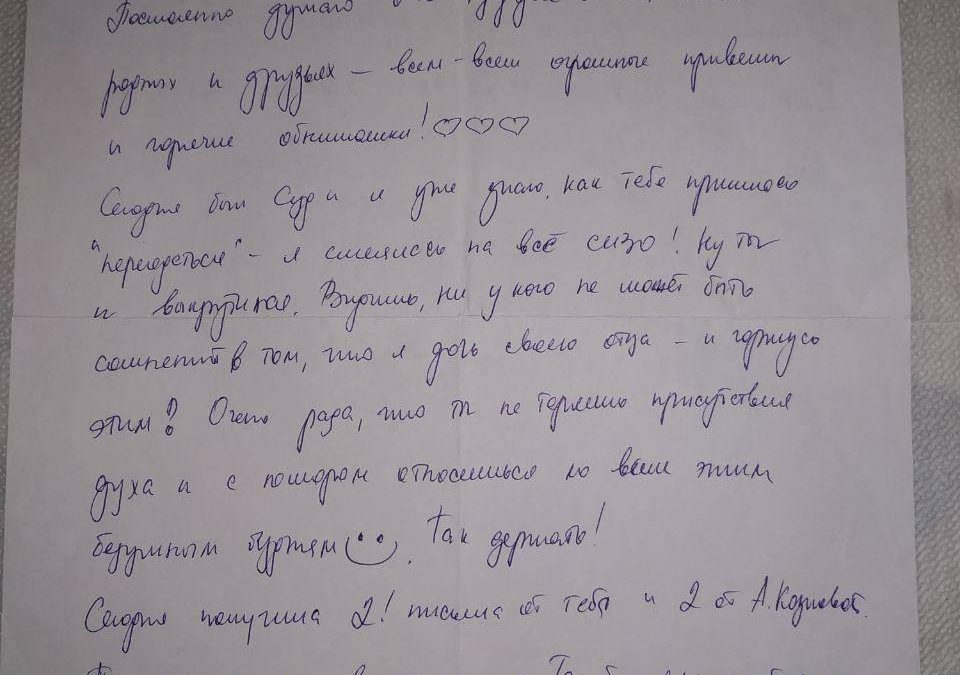 Постоянно думаю о
родных и друзьях – всем-всем огромные приветы
и горячие обнимашки! ♡♡♡
Сегодня был Суд и я уже знаю, как тебе пришлось
"переодеться" - я смеялась на всё сизо! Ну ты
и выкрутился. Видишь, ни у кого не может быть
сомнений в том, что я дочь своего отца – и горжусь
этим! Очень рада, что ты не теряешь присутствия
духа и с юмором относишься ко всем этим
безумным буржям. Так держать!
Сегодня получила 2! письма от тебя и 2 от А.Козловой.